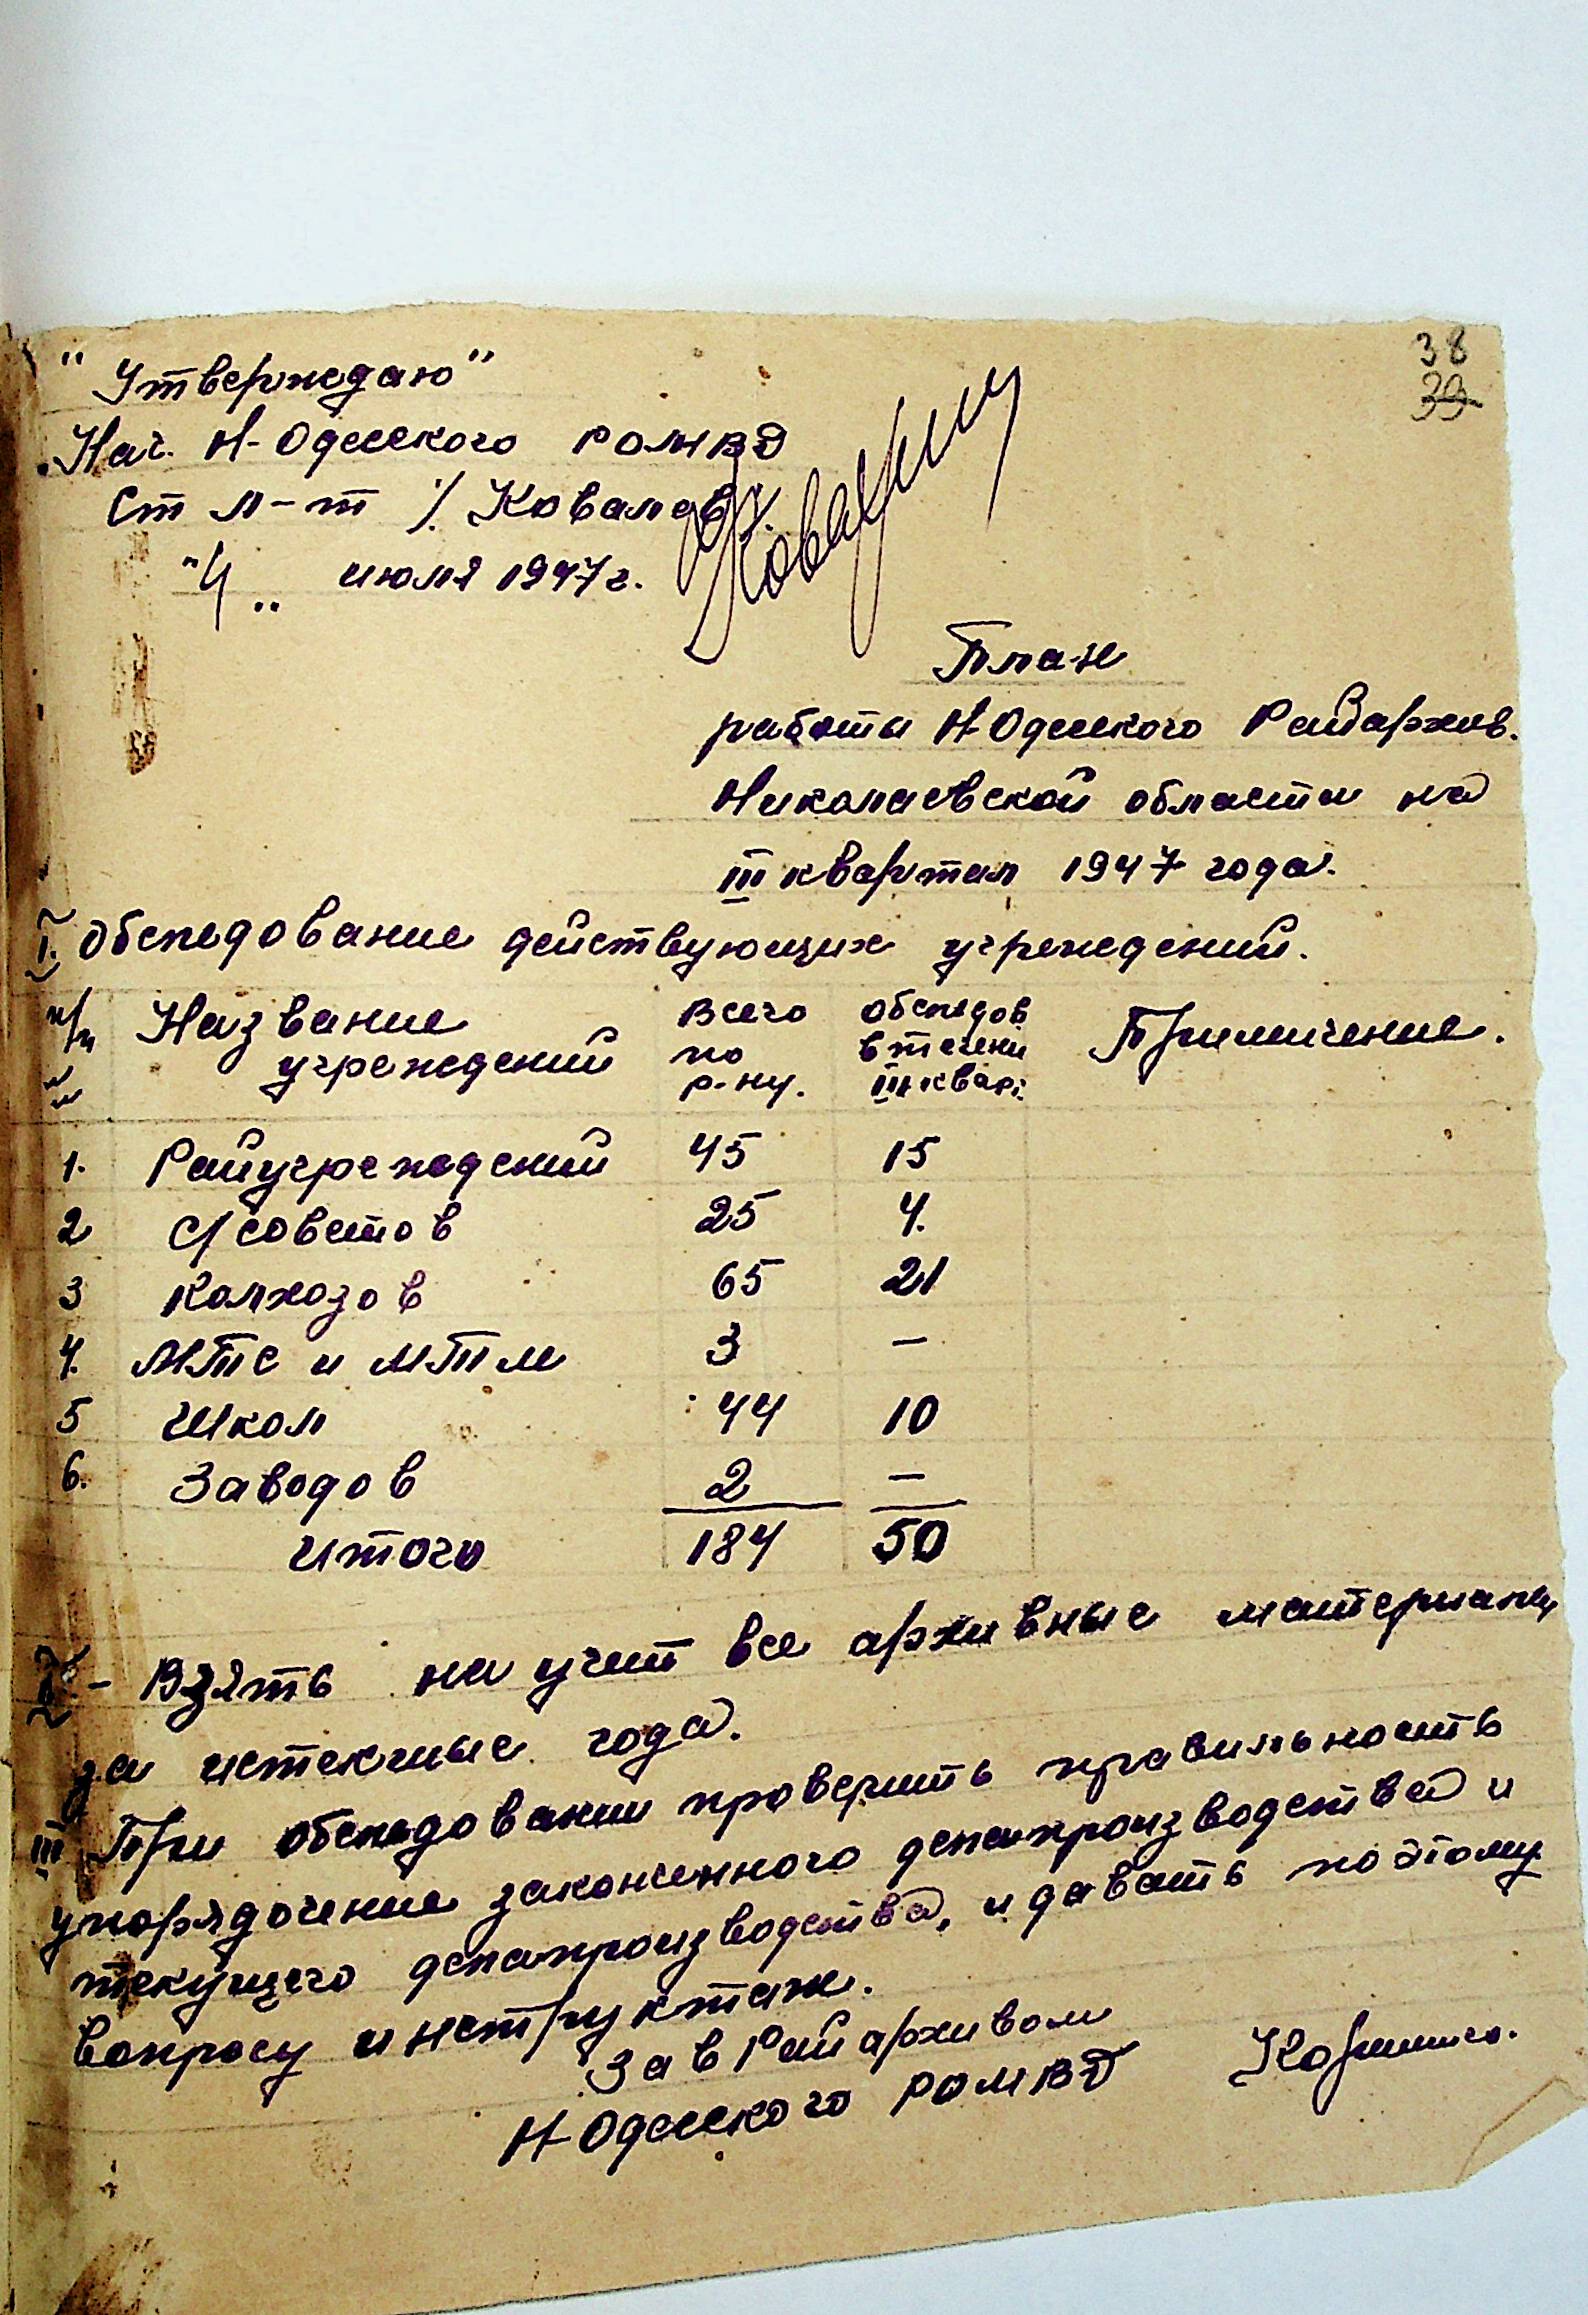 38
39
"Утверждаю"
Нач. Н-Одесского РОМВД
Ст л-т /. Ковалев
"4" июля 1947 г.
План
работы Н Одесского Райархив.
Николаевской области на
III квартал 1947 года.
I. Обследование действующих учреждений.
п/п Название учреждений Всего по р-ну. Обследов в течени III кварт. Примичение.
1. Райучреждений 45 15
2 с/советов 25 4.
3 Колхозов 65 21
4. МТС и МТМ 3 —
5 Школ 44 10
6. Заводов 2 —
Итого 184 50
II. - Взять на учет все архивные материалы
за истекшые года.
III При обследовании проверить правильность
упорядочение законченного делопроизводства и
текущего делопроизводства, и давать поэтому
вопросу инструктаж.
Зав Райархивом
Н Одесского РОМВД